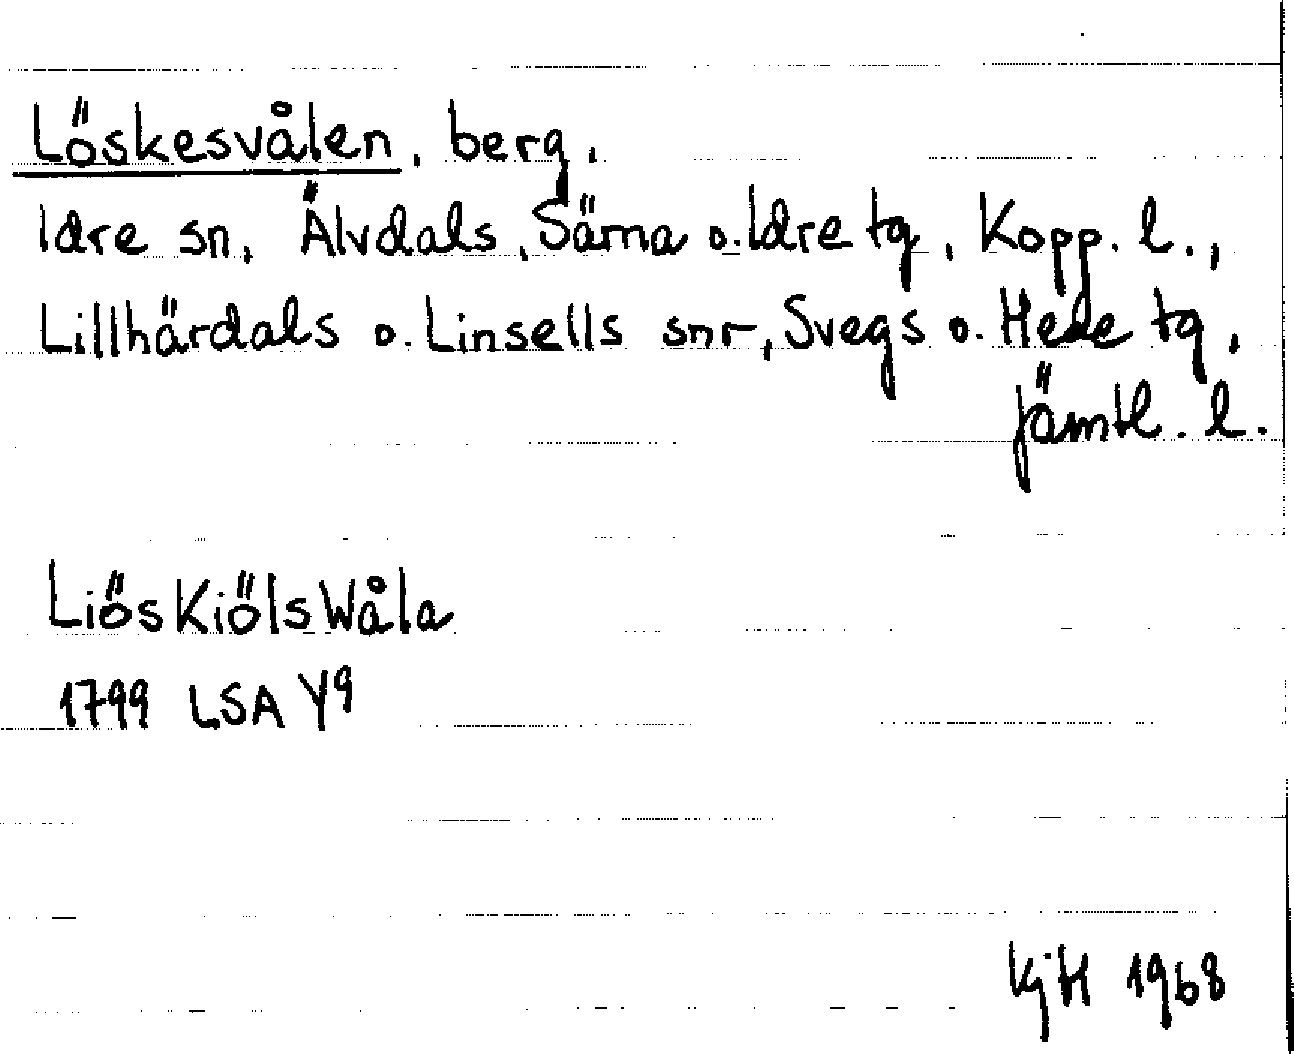 Löskesvålen, berg,
Idre sn, Älvdals, Särna o. Idre tg, Kopp. l.,
Lillhärdals o. Linsells snr, Svegs o. Hede tg,
Jämtl. l.
Liös Kiöls Wåla
1799 LSA Y9
KjH 1968